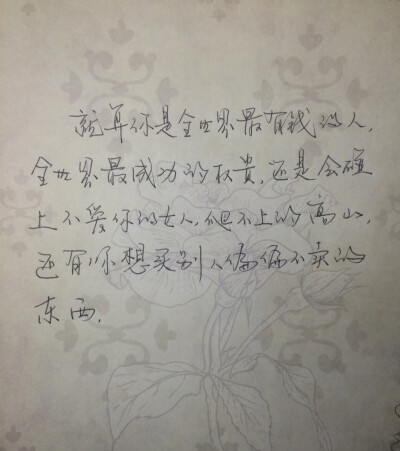 就算你是全世界最有钱的人,
全世界最成功的权贵,还是会碰
上不爱你的女人,爬不上的高山,
还有你想买别人偏偏不卖的
东西.